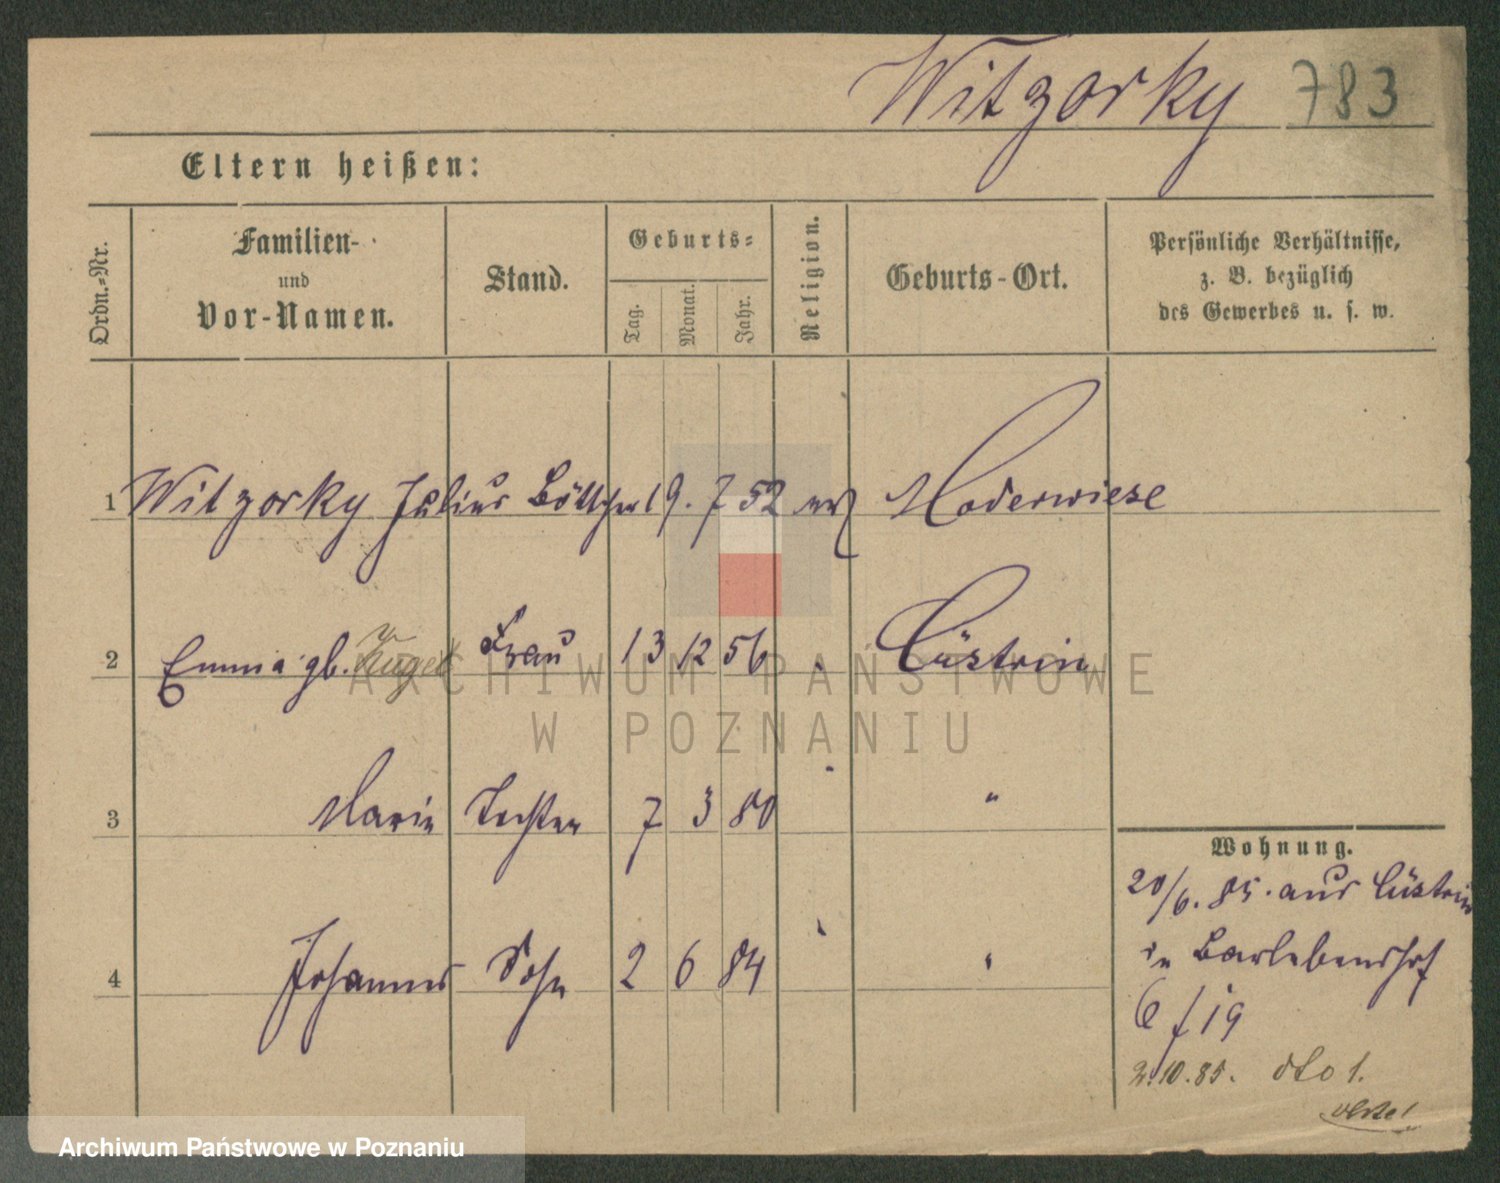 Witzorky 783
Eltern heißen:
Ordn.-Nr.
Familien-
und
Vor-Namen.
Stand.
Geburts-
Tag.
Monat.
Jahr.
Religion.
Geburts-Ort.
Persönliche Verhältnisse,
z. B. bezüglich
des Gewerbes u. s. w.
1 Witzorky Julius Böttcher 19. 7 52 Moderwiese
2 Emma gb. Frau 13 12 56 Cüstrin
3 Marie Tochter 7 3 80 "
4 Johannes Sohn 2 6 84 "
Wohnung.
20/6. 85. aus Cüstrin
in Barlebenshof
6 f 19
2.10.85. dto 1.
ARCHIWUM PAŃSTWOWE
W POZNANIU
Archiwum Państwowe w Poznaniu